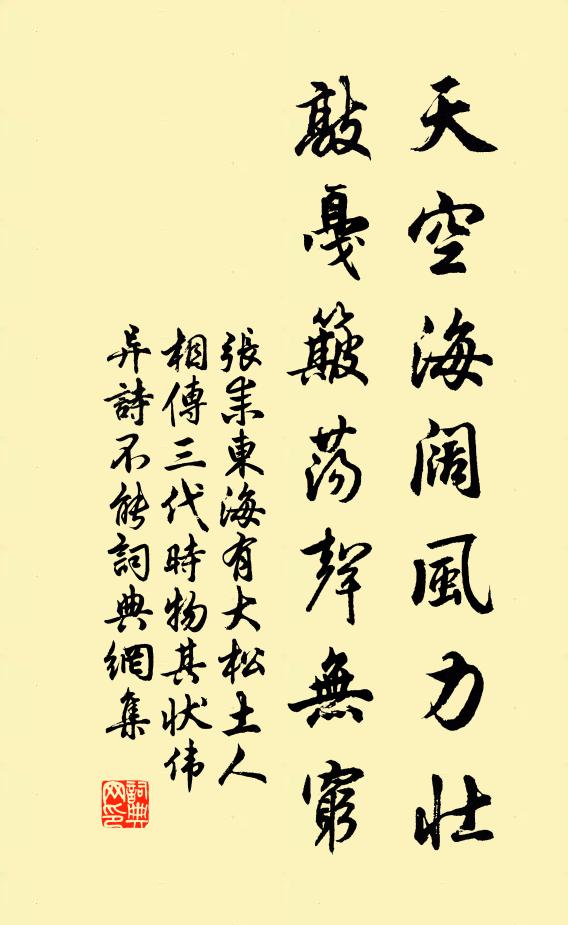 天空海阔風力壯
敲戞簸蕩聲無窮
張耒東海有大松土人
相傳三代時物其狀伟
异詩不能詞典網集
詞典
网印